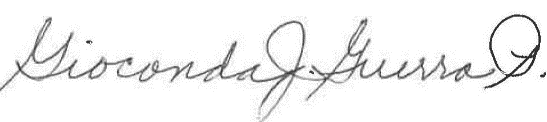 Gioconda J. Guerra P.